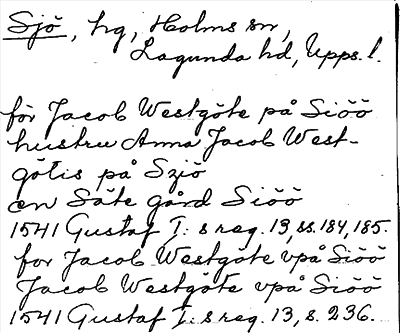 Sjö, hg, Holms sn,
Lagunda hd, Upps. l.
för Jacob Westgöte på Siöö
hustru Anna Jacob West-
götis på Szjö
en Säte gård Siöö
1541 Gustaf I:s reg. 13, ss. 184, 185.
for Jacob Westgöte vpå Siöö
Jacob Westgöte vpå Siöö
1541 Gustaf I:s reg. 13, s. 236.